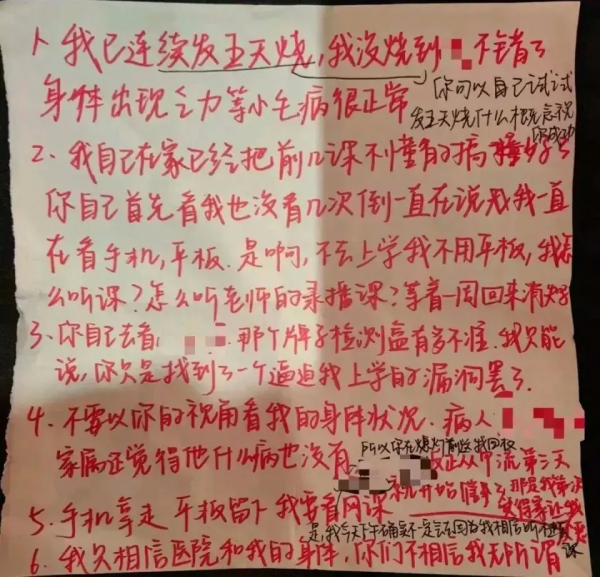 1、我已连续发五天烧，我没烧到 不错了
身体出现乏力等小毛病很正常
你可以自己试试
发五天烧什么概念
2、我自己在家已经把前几课不懂的搞
你自己首先看我也没看几次倒一直在说我一直
在看手机，平板．是啊，不去上学我不用平板，我怎
么听课？怎么听老师的录播课？等着一周回来
3、你自己去看， 那个牌子检测盒有多不准．我只能
说，你只是找到了一个逼迫我上学的漏洞罢了．
4、不要以你的视角看我的身体状况．病人
家属还觉得他什么病也没有
所以你在 前还我
从甲流第三天
开始
5、手机拿走 平板留下 我要看网课
是，我今天下午确实不一定 因为我相信
6、我只相信医院和我的身体，你们不相信我无所谓
课